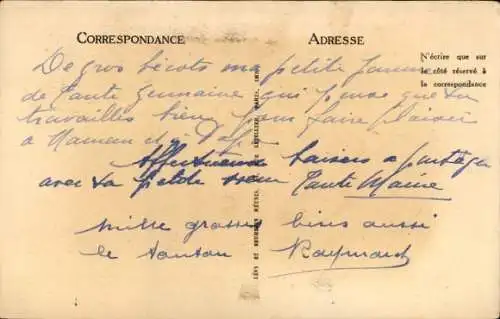 CORRESPONDANCE
ADRESSE
N'écrire que sur
le côté réservé à
la correspondance
De gros bécots ma petite
de Tante Germaine qui pense que tu
travailles bien pour faire plaisir
a Maman et a Papa
Affectueux baisers a partager
avec ta petite sœur Tante
mille grosses bises aussi
le tonton Raymond
LÉVY ET NEURDEIN RÉUNIS, PARIS, IMP.